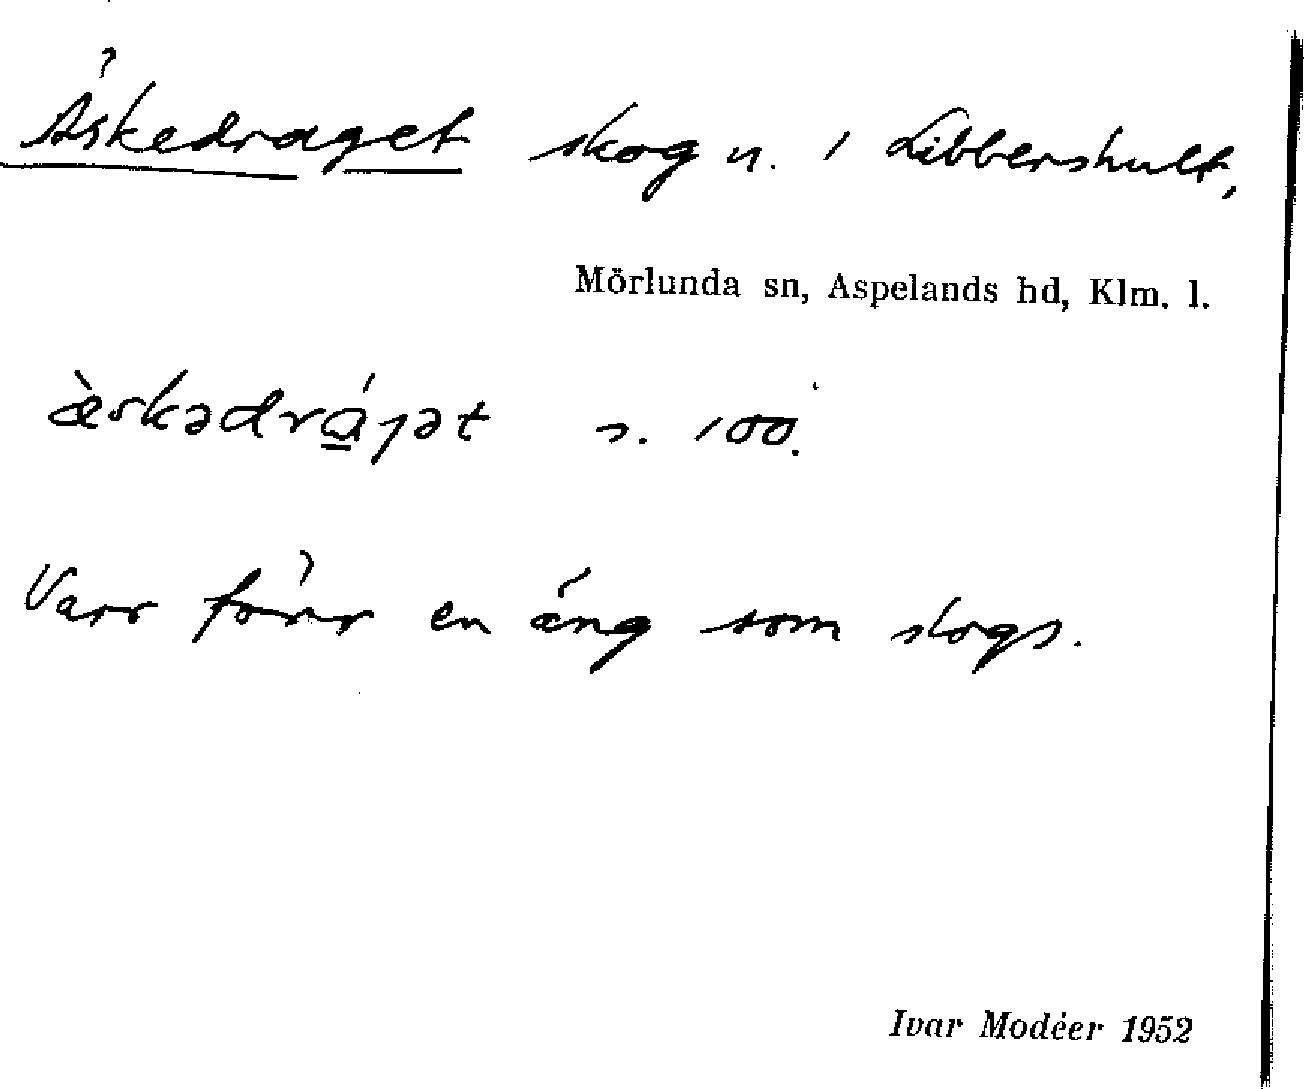 Äskedraget skog n. i Libbershult,
Mörlunda sn, Aspelands hd, Klm. l.
æ̀skədrájət s. 100.
Varr förr en äng som slogs.
Ivar Modéer 1952